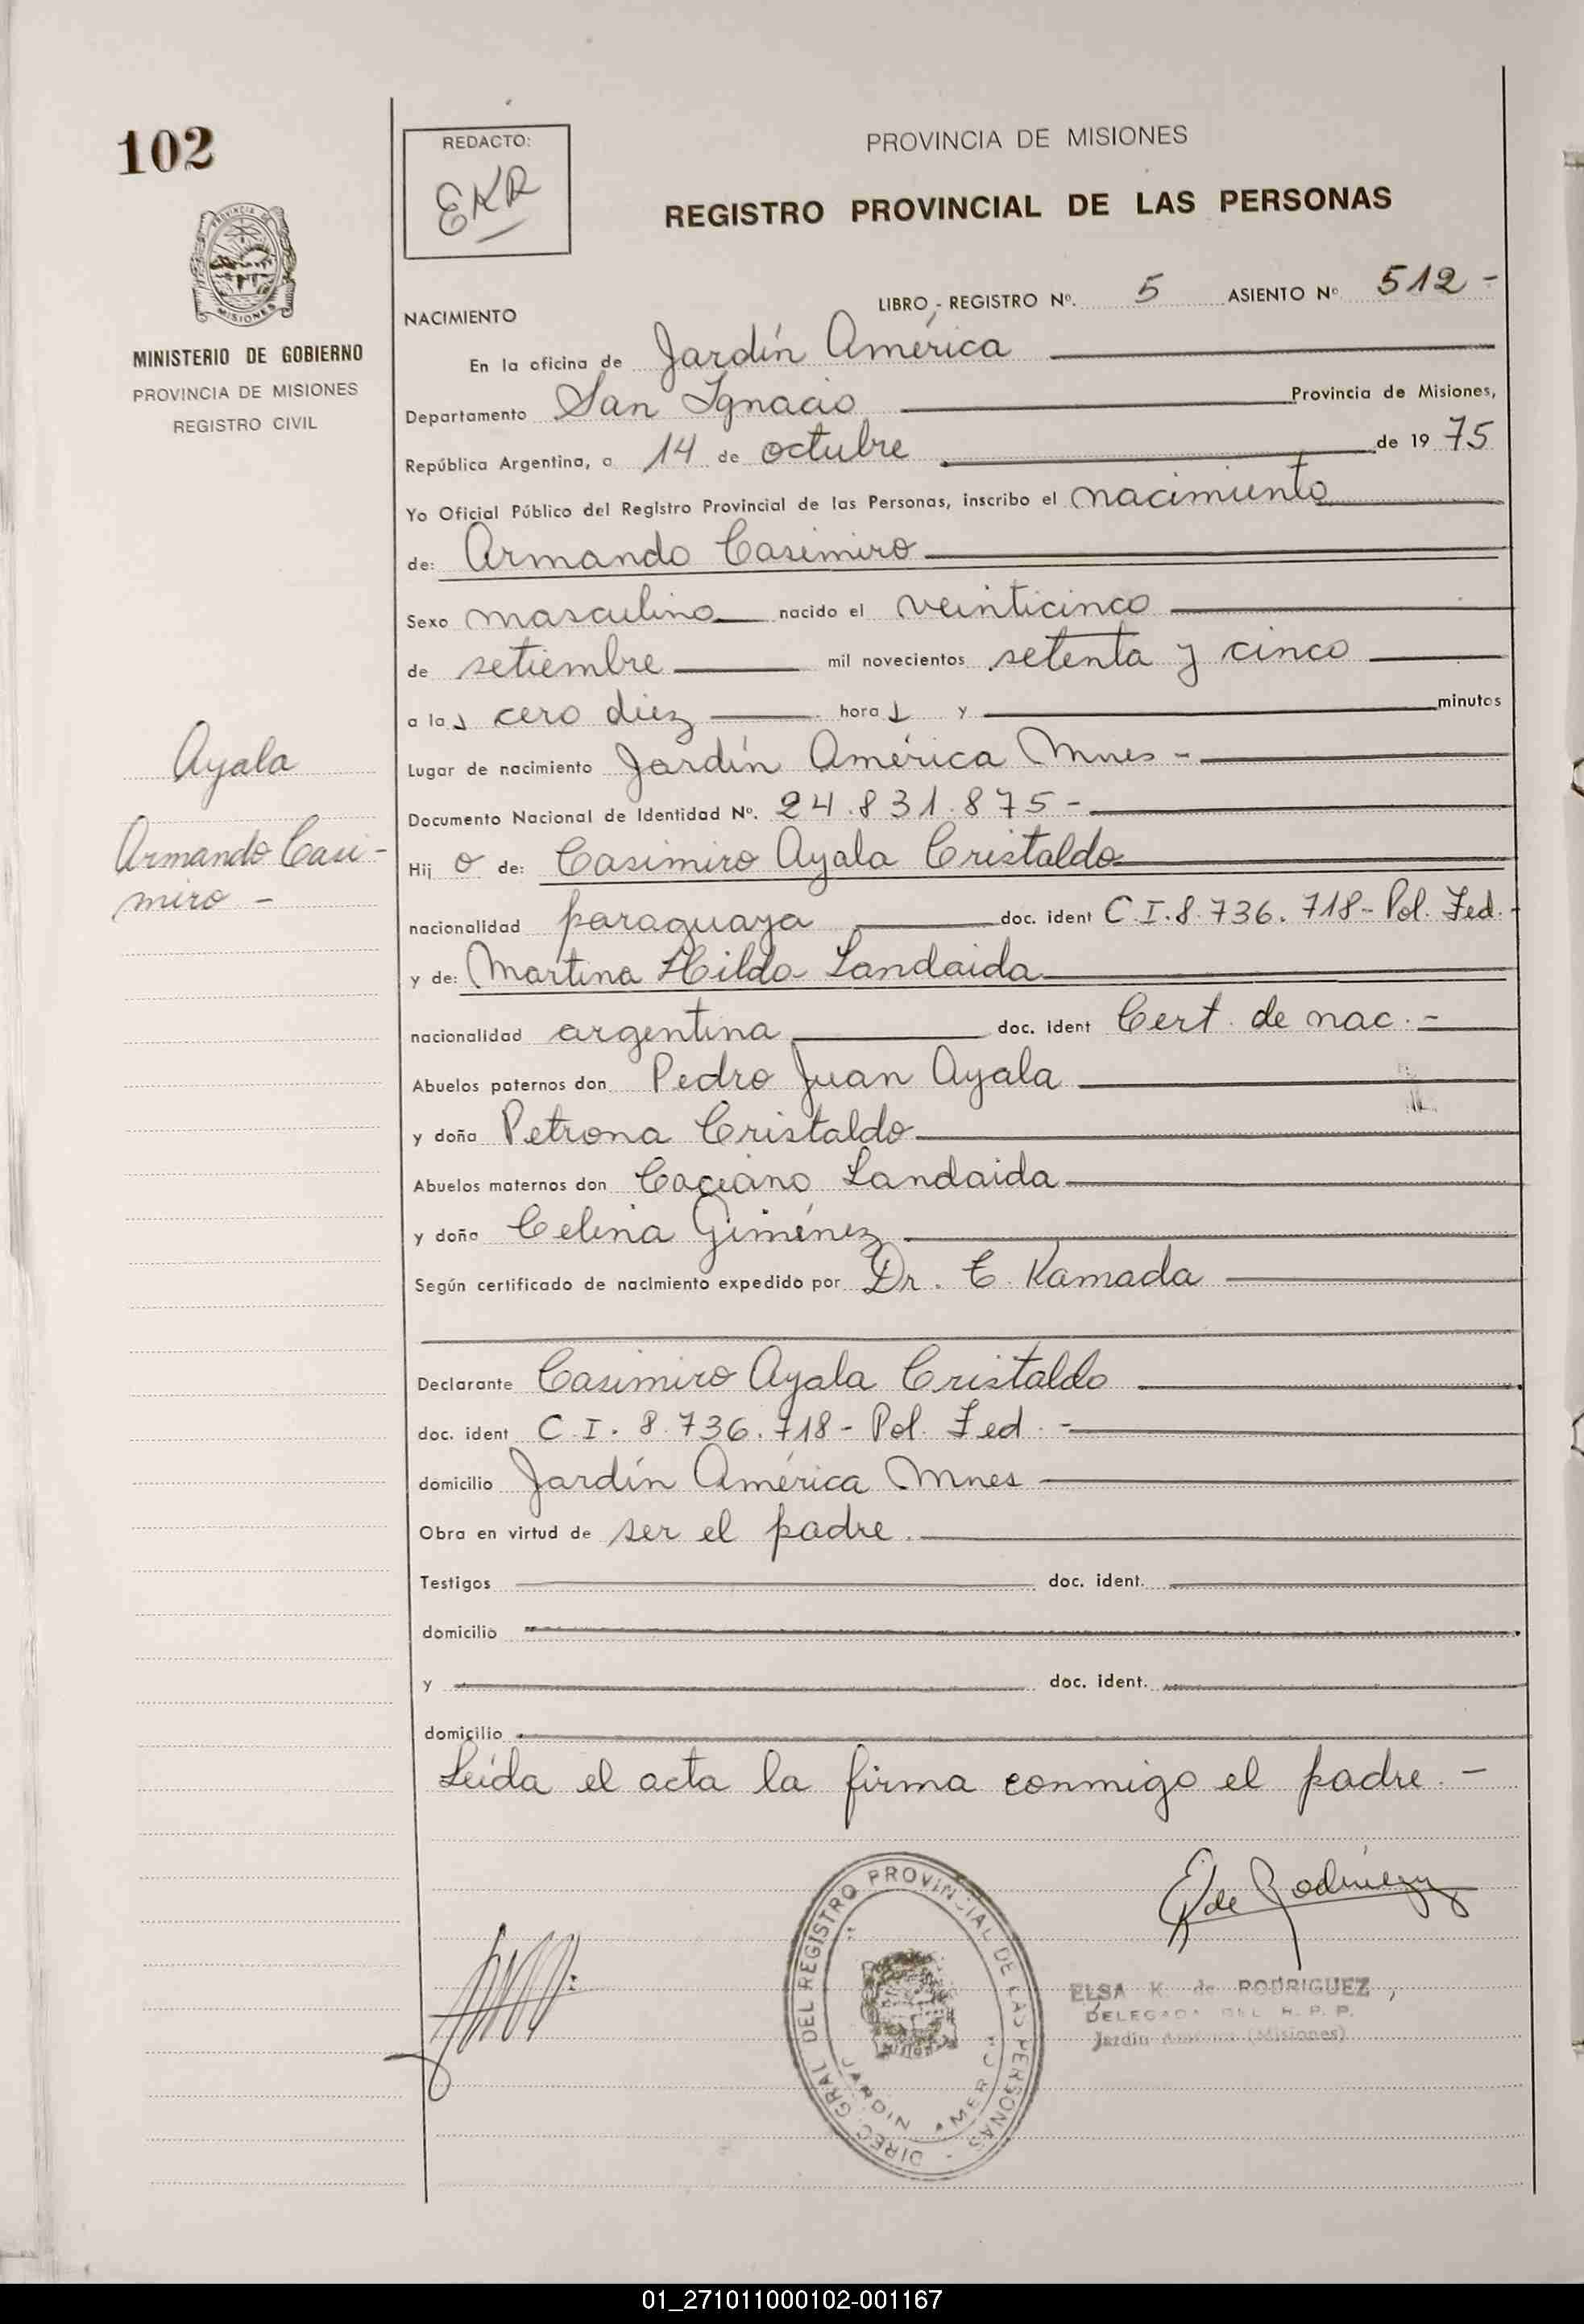 102
REDACTO:
EKR
PROVINCIA DE MISIONES
REGISTRO PROVINCIAL DE LAS PERSONAS
PROVINCIA DE
MISIONES
MINISTERIO DE GOBIERNO
PROVINCIA DE MISIONES
REGISTRO CIVIL
LIBRO - REGISTRO Nº. 5 ASIENTO Nº 512 -
NACIMIENTO
En la oficina de Jardín América
Departamento San Ignacio Provincia de Misiones,
República Argentina, a 14 de octubre de 19 75
Yo Oficial Público del Registro Provincial de las Personas, inscribo el nacimiento
de: Armando Casimiro
Sexo masculino nacido el veinticinco
de setiembre mil novecientos setenta y cinco
a las cero diez hora y minutos
Lugar de nacimiento Jardín América Mnes -
Documento Nacional de Identidad Nº. 24.831.875 -
Ayala
Armando Casi-
miro -
Hij o de: Casimiro Ayala Cristaldo
nacionalidad paraguaya doc. ident C.I. 8.736.718 - Pol. Fed. -
y de: Martina Hilda Landaida
nacionalidad argentina doc. ident Cert. de nac. -
Abuelos paternos don Pedro Juan Ayala
y doña Petrona Cristaldo
Abuelos maternos don Caciano Landaida
y doña Celina Giménez
Según certificado de nacimiento expedido por Dr. C. Kamada
Declarante Casimiro Ayala Cristaldo
doc. ident C.I. 8.736.718 - Pol. Fed. -
domicilio Jardín América Mnes
Obra en virtud de ser el padre.
Testigos doc. ident.
domicilio
y doc. ident.
domicilio
Leída el acta la firma conmigo el padre. -
E K de Rodríguez
DIREC. GRAL DEL REGISTRO PROVINCIAL DE LAS PERSONAS -
JARDIN AMERICA
ELSA K. de RODRIGUEZ
DELEGADA DEL R. P. P.
Jardín América (Misiones)
01_271011000102-001167